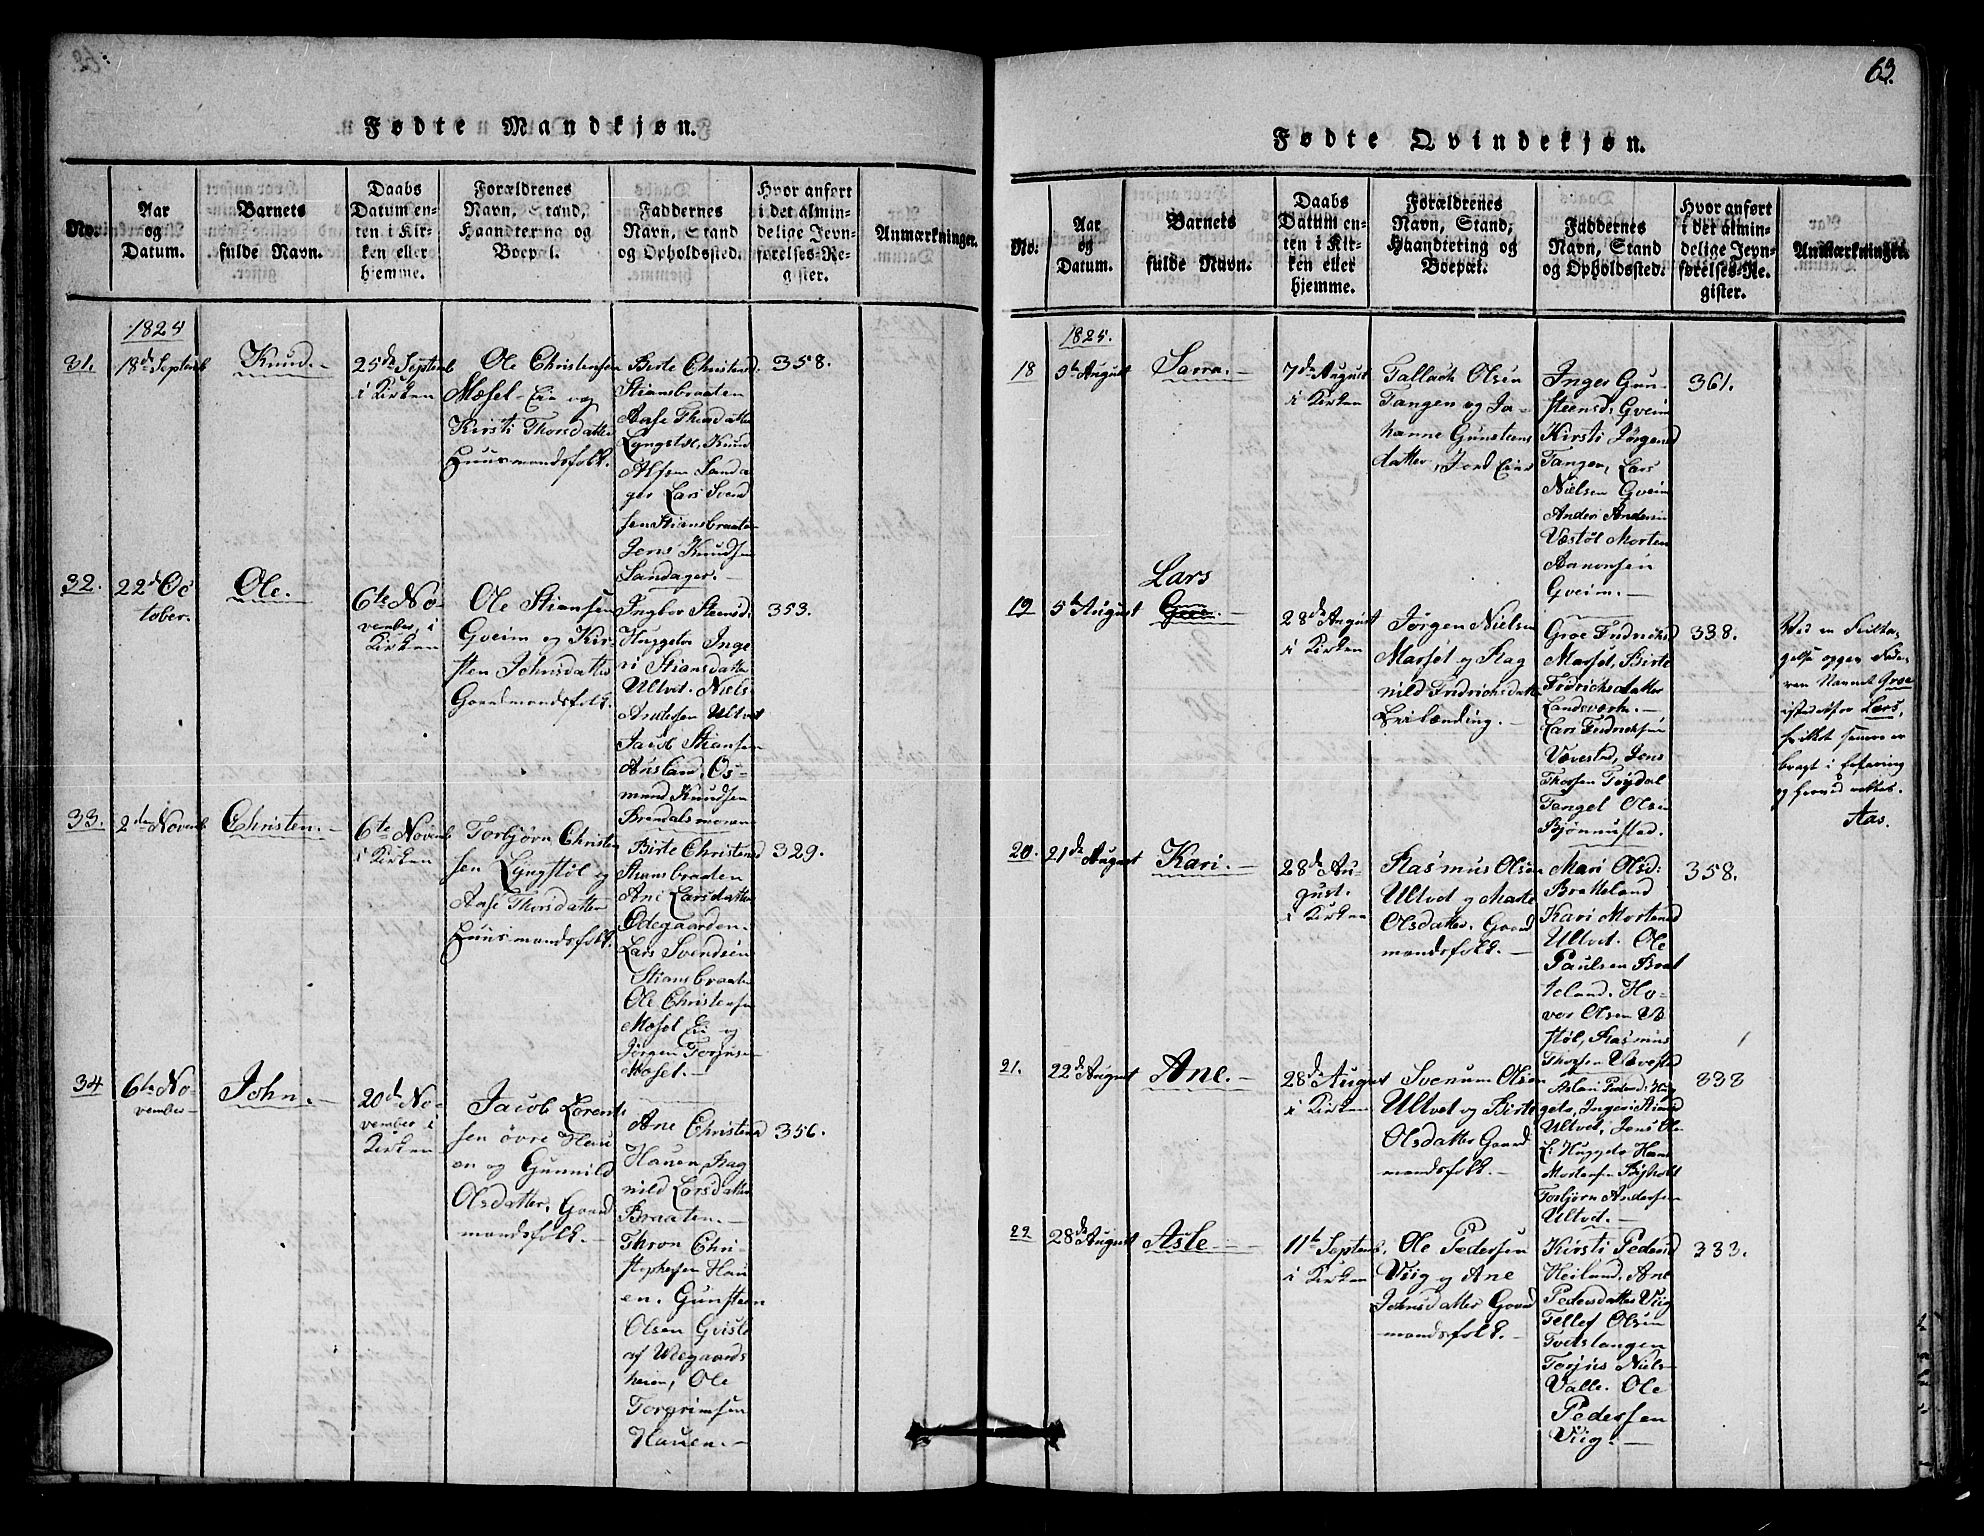 Fødte Mandkjøn.
No.
Aar
og
Datum.
Barnets
fulde Navn.
Daabs
Datum en-
ten i Kir-
ken eller
hjemme.
Forældrenes
Navn, Stand,
Haandtering og
Boepæl.
Faddernes
Navn, Stand
og Opholdssted.
Hvor anført
i det almin-
delige Jevn-
førelses-Re-
gister.
Anmærkninger.
1825
31.
18de Septemb
Knud.
25de Septemb
i Kirken
Ole Christensen
Mæsel Eie og
Kirsti Thorsdatter
Huusmandsfolk.
Birte Christensd.
Stiansbraaten
Aase Thorsdatter
Lyngstøl, Knud
Olsen Landa
ger Lars Svend
sen Stiansbraaten
Jens Knudsen
Landager.
358.
32.
22de Oc
tober.
Ole.
6te No-
vember, i
Kirken
Ole Stiansen
Gveim og Kir-
sten Johnsdatter
Gaardmandsfolk.
Ingbor Steensd:
Huggeto Inge
ri Stiansdatter
Ultvet. Niels
Andersen Ultvet
Jacob Stiansen
Ausland, Os-
mund Knudsen
Brendalsmoren
353.
33.
2den Novemb
Christen.
6te Novemb
i Kirken
Torbjørn Christen
sen Lyngstøl og
Aase Thorsdatter
Huusmandsfolk.
Birte Christensd
Stiansbraaten
Ane Larsdatter
Ødegaarden.
Lars Svendsen
Stiansbraaten
Ole Christensen
Mæsel Ei og
Jørgen Torjusen
Mæsel.
329.
34
6te No-
vember
John.
20de No-
vember i
Kirken
Jacob Lorent
sen øvre Hau
en og Gunnild
Olsdatter, Gaard
mandsfolk.
Ane Christensd
Hauen, Rag
nild Larsdatter
Braaten.
Thron Chri-
stophersen Hau
en. Gunsteen
Olsen Gvisle
af Wegaards
heien, Ole
Torgrimsen
Hauen.
356.
63.
Fødte Qvindekjøn.
No.
Aar
og
Datum.
Barnets
fulde Navn.
Daabs
Datum en-
ten i Kir-
ken eller
hjemme.
Forældrenes
Navn, Stand,
Haandtering og
Boepæl.
Faddernes
Navn, Stand
og Opholdssted.
Hvor anført
i det almin-
delige Jevn-
førelses-Re-
gister.
Anmærkninger.
1825.
18
August
Sarra.
7de August
i Kirken
Tallach Olsen
Tangen og Jo-
hanne Gunsteens
datter, Jord Eier
Inger Gun-
steensd: Gveim
Kirsti Jørgensd
Tangen, Lars
Nielsen Gveim
Anders Anders
Væstøl Morten
Aanonsen
Gveim.
361.
19
5te August
Lars
Groe.
28de August
i Kirken
Jørgen Nielsen
Marsel og Rag
nild Fridrichsdatter
Groe Fridrichsd
Marsel, Birte
Fridrichsdatter
Landeværk.
Lars Fridrichsen
Vævestad, Jens
Thorsen Tøydal
Tangel Olsen
338.
Ved en Feilta-
gelse opgav Fade-
ren Navnet Groe
istedetfor Lars,
hvilket senere er
bragt i Erfaring
og herved rettes.
Aas.
20.
21de August
Kari.
28de Au-
gust.
i Kirken
Rasmus Olsen
Ultvet og Marte
Olsdatter, Gaard
mandsfolk.
Mari Olsd:
Bratteland
Kari Mortensd
Ultvet. Ole
Paulsen Brat
teland. Ho-
vor Olsen Væ
støl, Rasmus
Thorsen Vævestad
358.
21.
22de August
Ane.
28de August
i Kirken
Svenum Olsen
Ultvet og Birte
Olsdatter Gaard
mandsfolk.
Aslau Pedersd: Hug
geto, Ingeri Stiansd
Ultvet, Jens Ole
Huggeto Hans
Mortensen
Torbjørn Andersen
Ultvet.
338
22
28de August
Asle
11te Septemb.
i Kirken
Ole Pedersen
Viig og Ane
Johnsdatter Gaard
mandsfolk.
Kirsti Pedersd
Heiland, Ane
Pedersdatter Viig
Tellef Olsen
Tveitslangen
Torjus Niels
Valle. Ole
Pedersen
Viig.
333.